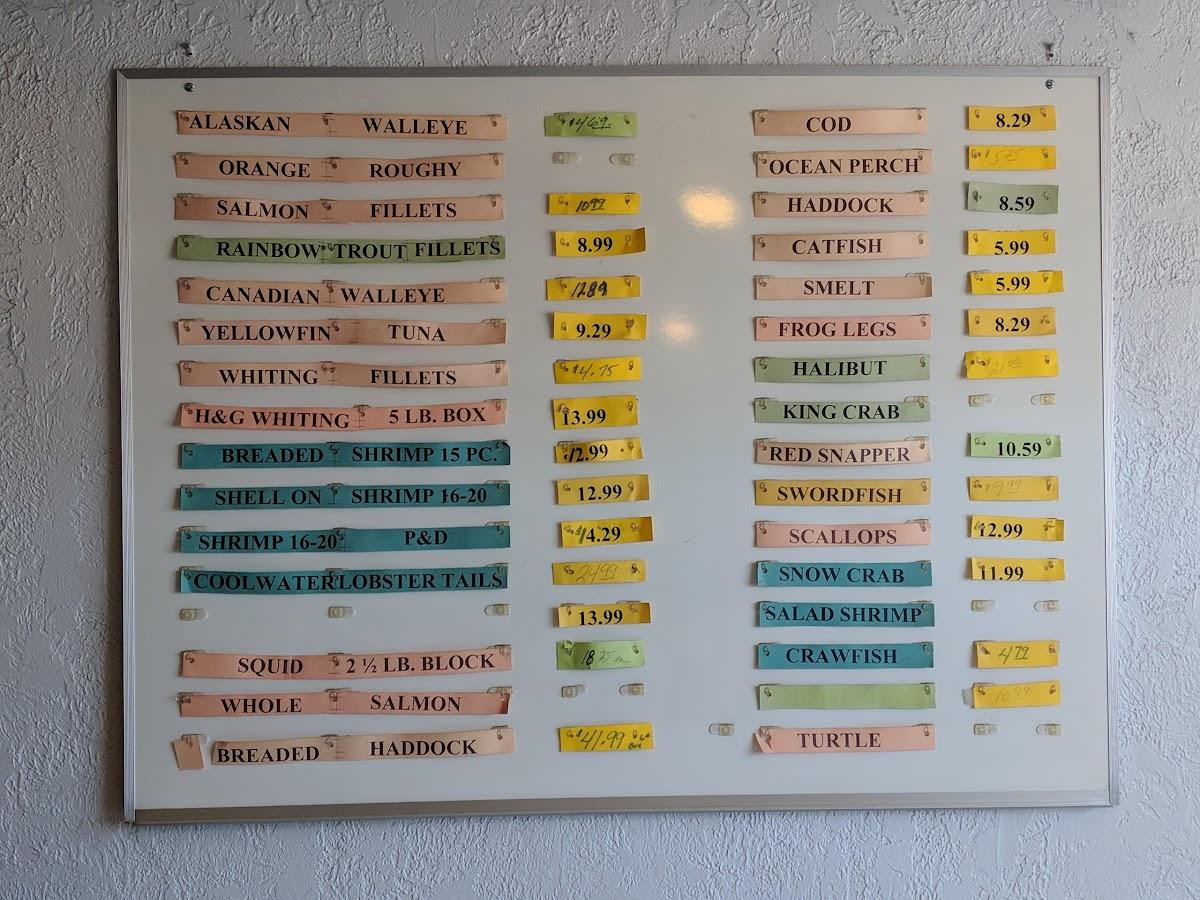 ALASKAN WALLEYE $4.69
ORANGE ROUGHY
SALMON FILLETS 10.99
RAINBOW TROUT FILLETS 8.99
CANADIAN WALLEYE 12.89
YELLOWFIN TUNA 9.29
WHITING FILLETS $4.75
H&G WHITING 5 LB. BOX 13.99
BREADED SHRIMP 15 PC. 12.99
SHELL ON SHRIMP 16-20 12.99
SHRIMP 16-20 P&D 14.29
COOLWATER LOBSTER TAILS 24.99
13.99
SQUID 2 ½ LB. BLOCK 18.75
WHOLE SALMON
BREADED HADDOCK $41.99
COD 8.29
OCEAN PERCH
HADDOCK 8.59
CATFISH 5.99
SMELT 5.99
FROG LEGS 8.29
HALIBUT $21.00
KING CRAB
RED SNAPPER 10.59
SWORDFISH $9.99
SCALLOPS 12.99
SNOW CRAB 11.99
SALAD SHRIMP
CRAWFISH 4.79
10.99
TURTLE